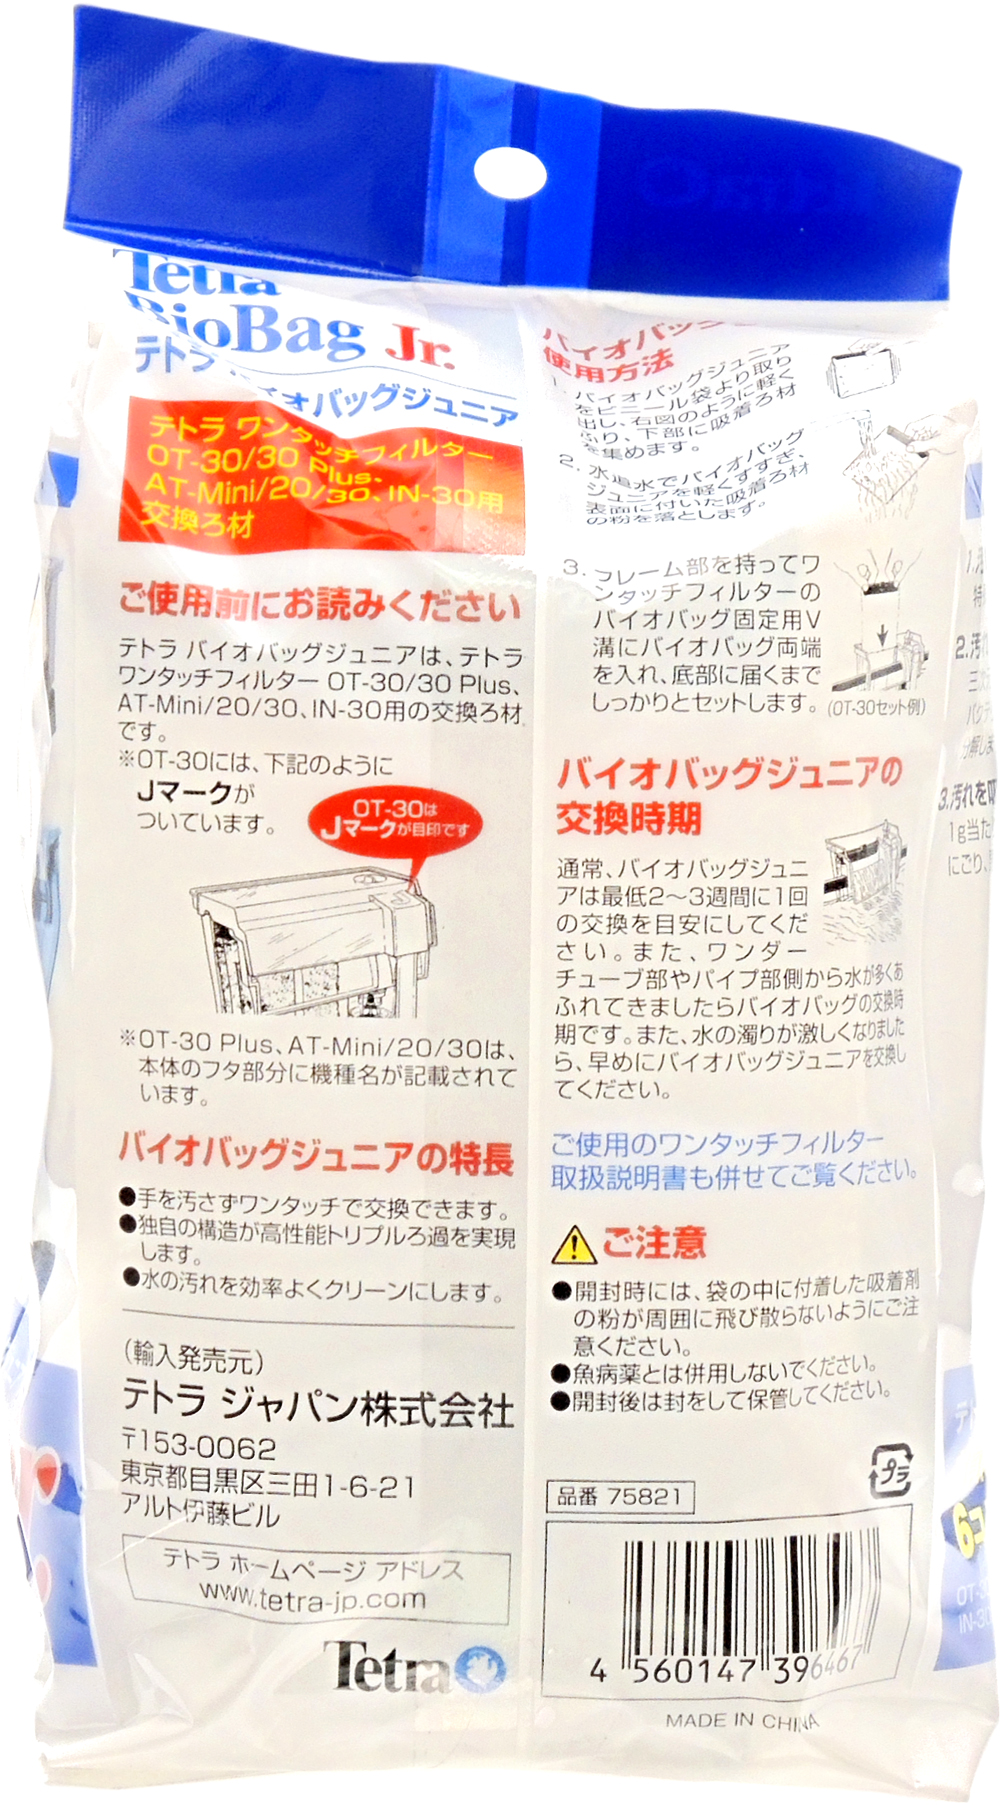 Tetra
BioBag Jr.
テトラ バイオバッグジュニア
テトラ ワンタッチフィルター
OT-30/30 Plus、
AT-Mini/20/30、IN-30用
交換ろ材
ご使用前にお読みください
テトラ バイオバッグジュニアは、テトラ
ワンタッチフィルター OT-30/30 Plus、
AT-Mini/20/30、IN-30用の交換ろ材
です。
※OT-30には、下記のように
Jマークが
ついています。
OT-30は
Jマークが目印です
※OT-30 Plus、AT-Mini/20/30は、
本体のフタ部分に機種名が記載されて
います。
バイオバッグジュニアの特長
●手を汚さずワンタッチで交換できます。
●独自の構造が高性能トリプルろ過を実現
します。
●水の汚れを効率よくクリーンにします。
(輸入発売元)
テトラ ジャパン株式会社
〒153-0062
東京都目黒区三田1-6-21
アルト伊藤ビル
テトラ ホームページ アドレス
www.tetra-jp.com
Tetra
バイオバッグ
使用方法
1. バイオバッグジュニア
をビニール袋より取り
出し、右図のように軽く
ふり、下部に吸着ろ材
を集めます。
2. 水道水でバイオバッグ
ジュニアを軽くすすぎ、
表面に付いた吸着ろ材
の粉を落とします。
3. フレーム部を持ってワ
ンタッチフィルターの
バイオバッグ固定用V
溝にバイオバッグ両端
を入れ、底部に届くまで
しっかりとセットします。
(OT-30セット例)
バイオバッグジュニアの
交換時期
通常、バイオバッグジュニ
アは最低2～3週間に1回
の交換を目安にしてくだ
さい。また、ワンダー
チューブ部やパイプ部側から水が多くあ
ふれてきましたらバイオバッグの交換時
期です。また、水の濁りが激しくなりました
ら、早めにバイオバッグジュニアを交換し
てください。
ご使用のワンタッチフィルター
取扱説明書も併せてご覧ください。
ご注意
●開封時には、袋の中に付着した吸着剤
の粉が周囲に飛び散らないようにご注
意ください。
●魚病薬とは併用しないでください。
●開封後は封をして保管してください。
プラ
品番 75821
4 560147 396467
MADE IN CHINA
1.汚
2.汚れ
三
バクテ
分解しま
3.汚れを吸
1g当た
にごり、
6コ
OT-3
IN-30